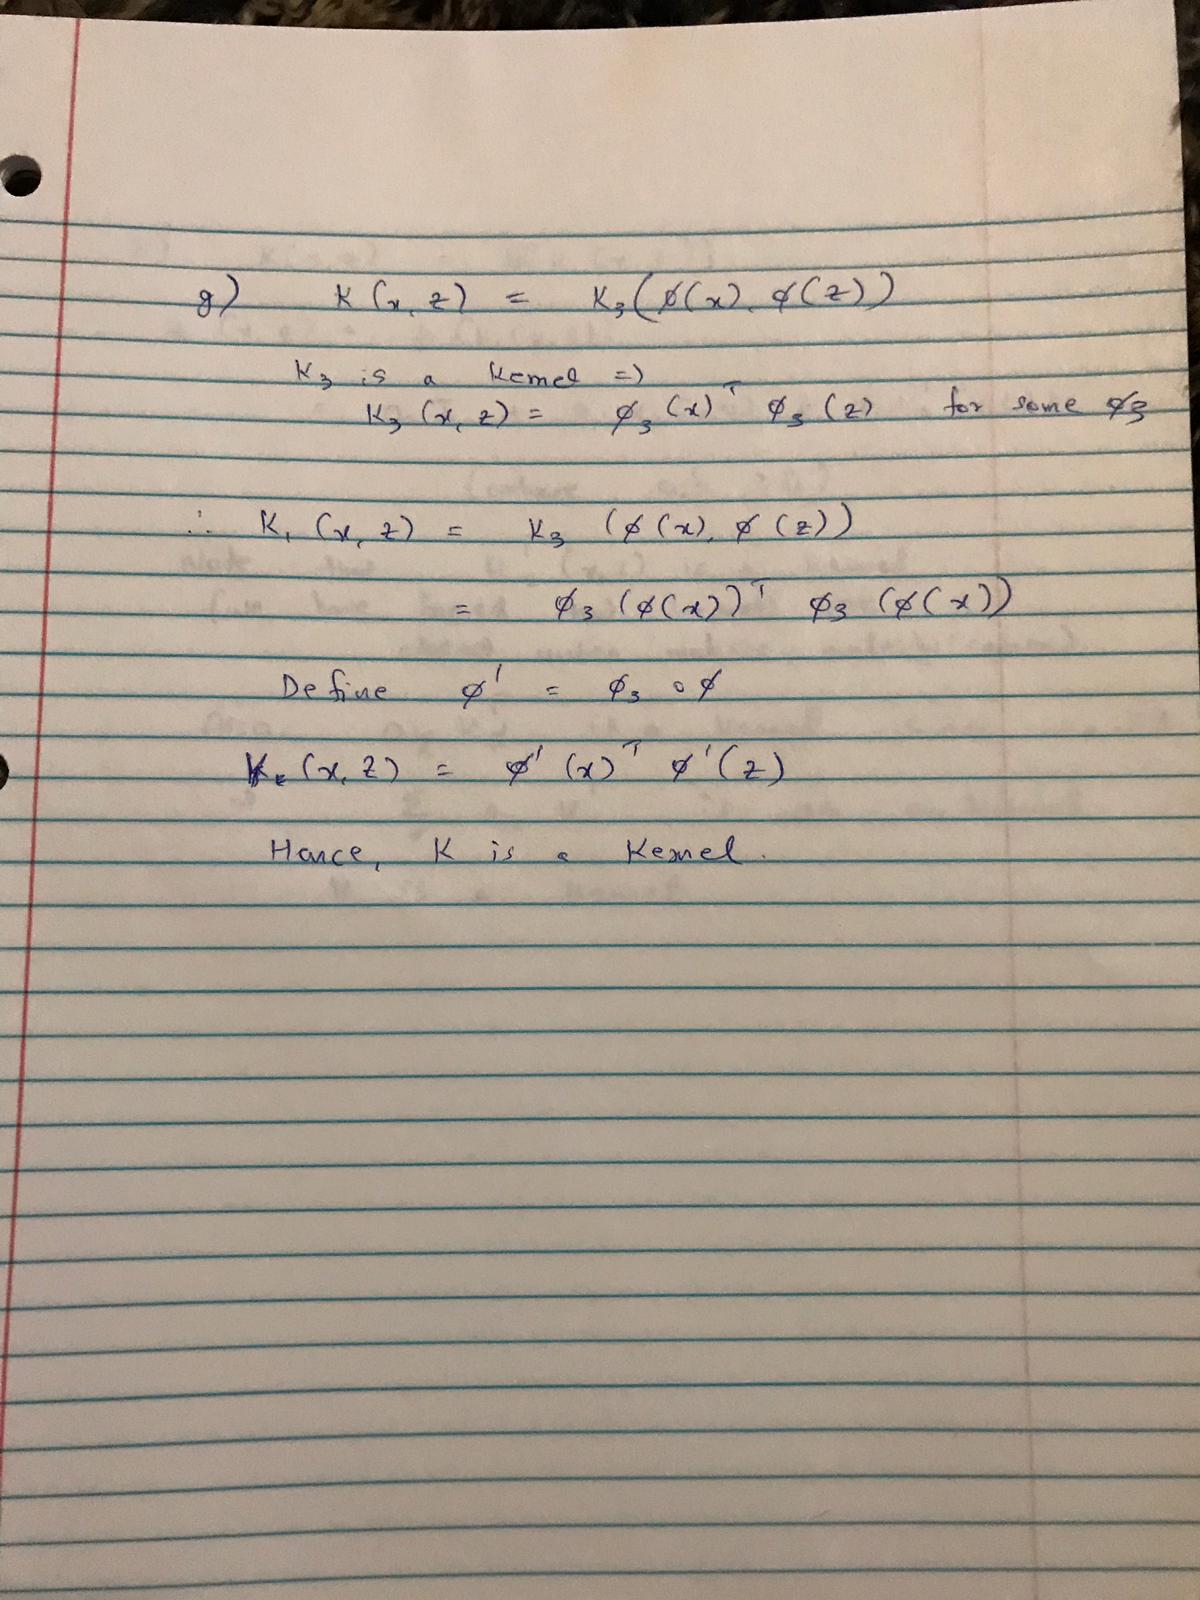 g) K(x, z) = K₃(ϕ(x), ϕ(z))
K₃ is a Kernel =)
K₃(x, z) = ϕ₃(x)ᵀ ϕ₃(z) for some ϕ₃
∴ K₁(x, z) = K₃(ϕ(x), ϕ(z))
= ϕ₃(ϕ(x))ᵀ ϕ₃(ϕ(x))
Define ϕ' = ϕ₃ ∘ ϕ
K(x, z) = ϕ'(x)ᵀ ϕ'(z)
Hence, K is a Kernel.